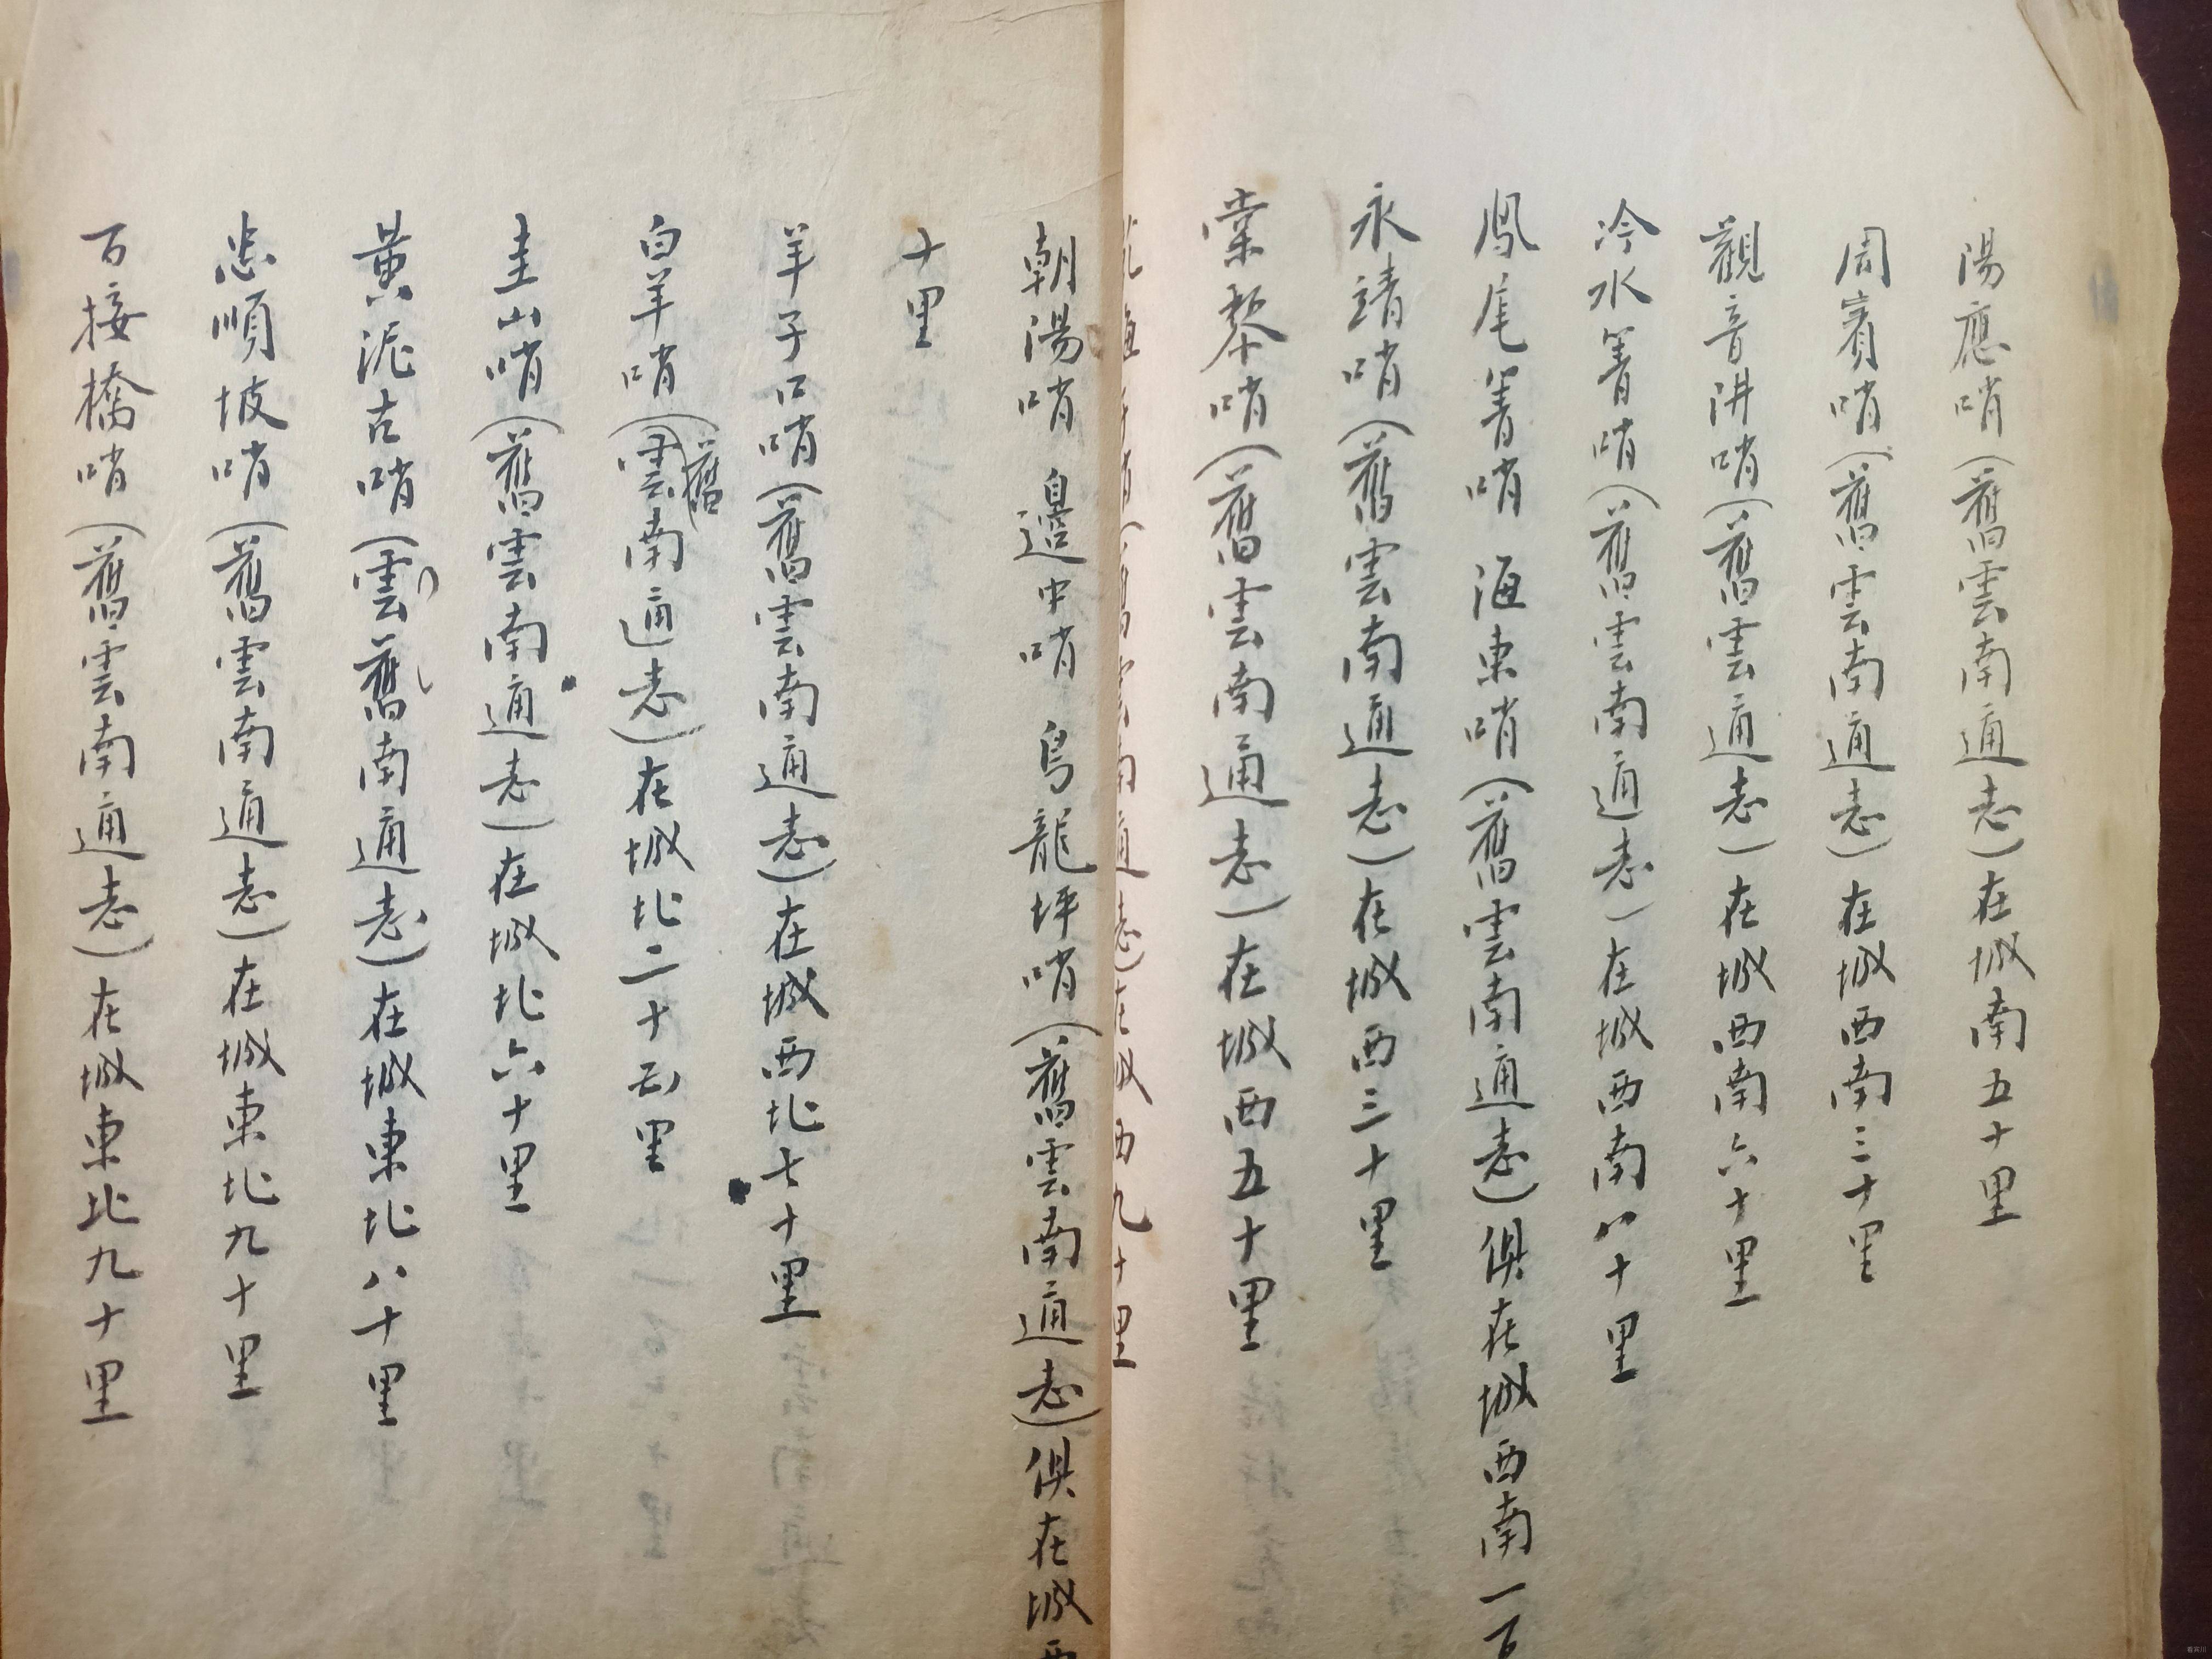 陽應哨(舊雲南通志)在城南五十里
周賽哨(舊雲南通志)在城西南三十里
觀音汫哨(舊雲通志)在城西南六十里
冷水箐哨(舊雲南通志)在城西南八十里
鳳尾箐哨 海東哨(舊雲南通志)俱在城西南一百
永靖哨(舊雲南通志)在城西三十里
棠黎哨(舊雲南通志)在城西五十里
雲南通志)在城西九十里
朝陽哨 邊中哨 烏龍坪哨(舊雲南通志)俱在城西
十里
羊子口哨(舊雲南通志)在城西北七十里
白羊哨(舊雲南通志)在城北二十五里
圭山哨(舊雲南通志)在城北六十里
黃泥古哨(雲舊南通志)在城東北八十里
忠順坡哨(舊雲南通志)在城東北九十里
百接橋哨(舊雲南通志)在城東北九十里
看宾川